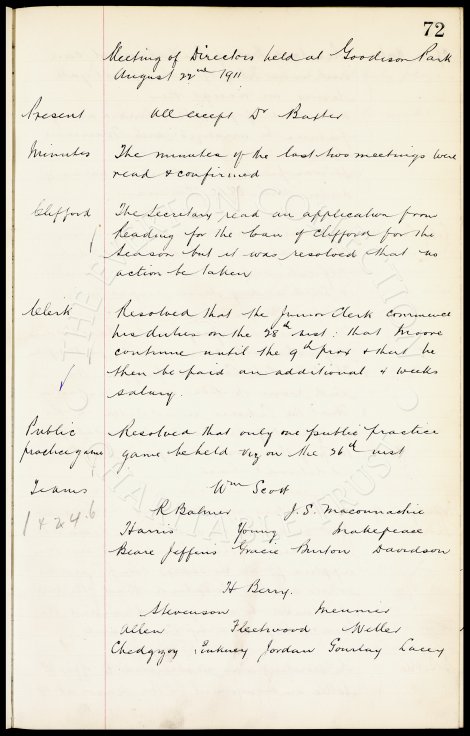 72
Meeting of Directors held at Goodison Park
August 22nd 1911
Present All except Dr Baxter
Minutes The minutes of the last two meetings were
read & confirmed
Clifford The Secretary read an application from
Reading for the loan of Clifford for the
Season but it was resolved that no
action be taken
Clerk Resolved that the Junior Clerk commence
his duties on the 28th inst: that Moore
continue until the 9th prox & that he
then be paid an additional 4 weeks
salary.
Public Resolved that only one public practice
practice game game be held viz on the 26th inst
Teams Wm Scott
1 & 2 & 4.6
R Balmer J. S. Maconnachie
Harris Young Makepeace
Beare Jeffris Gracie Burton Davidson
H Berry.
Stevenson Meunier
Allen Fleetwood Weller
Chedgzoy Pinkney Jordan Gourlay Lacey
THE EVERTON COLLECTION CHARITABLE TRUST